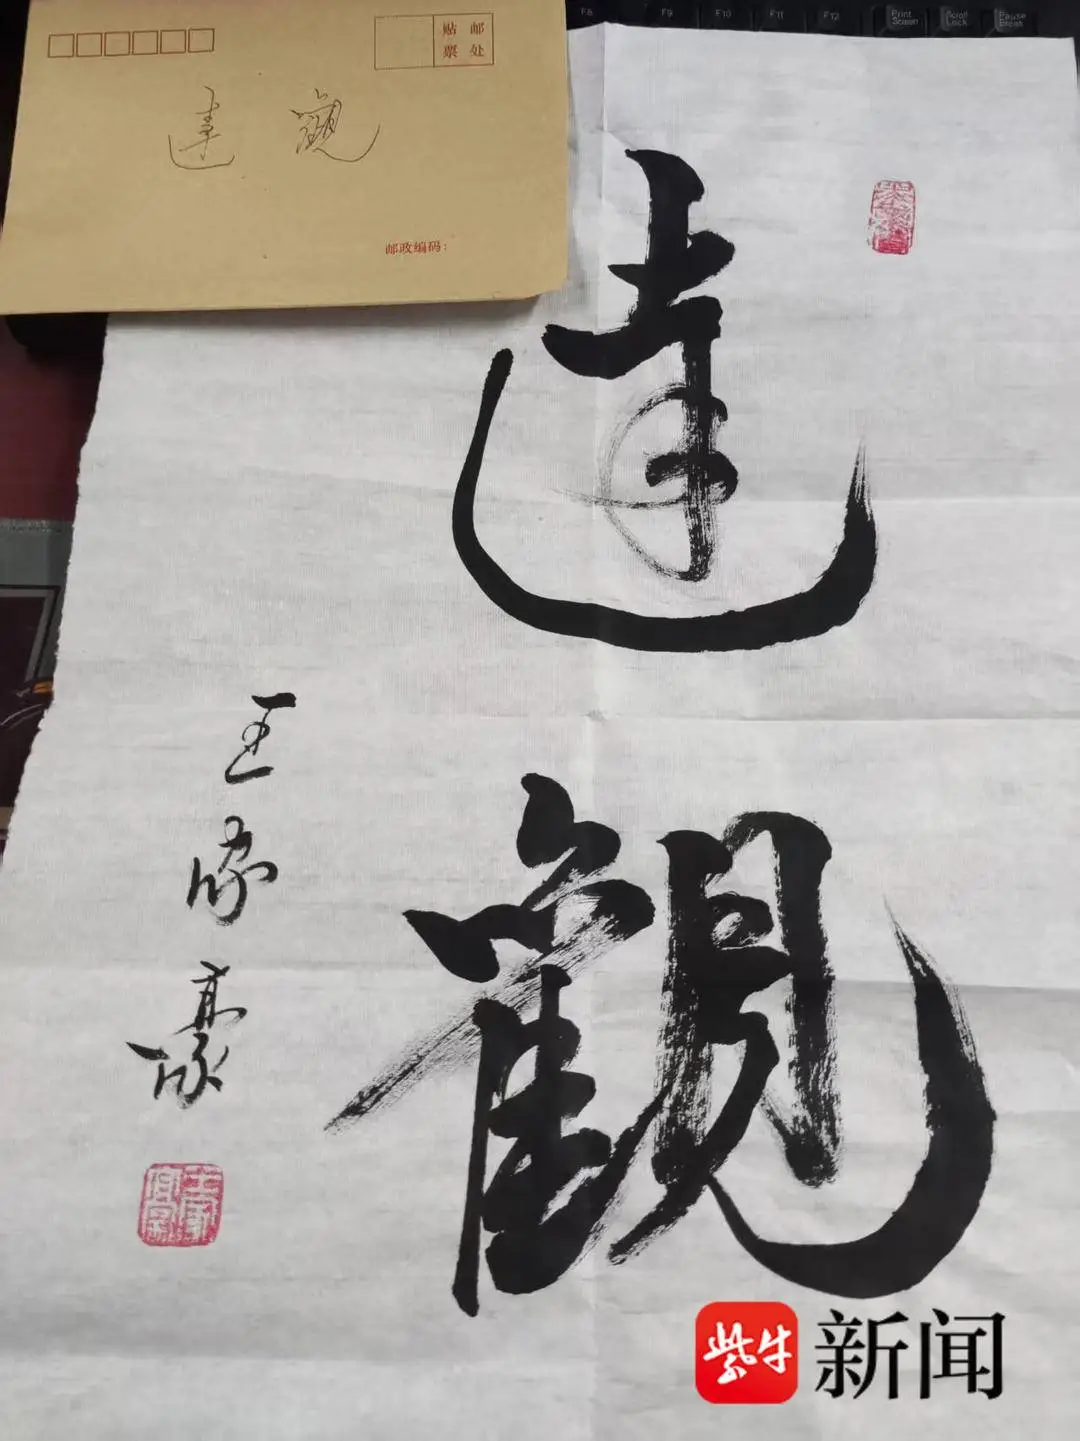 F8 F9 F10 F11 F12 Print Screen Scroll Lock Pause Break
贴邮
票处
達 觀
邮政编码：
達
觀
王家豪
紫牛 新闻